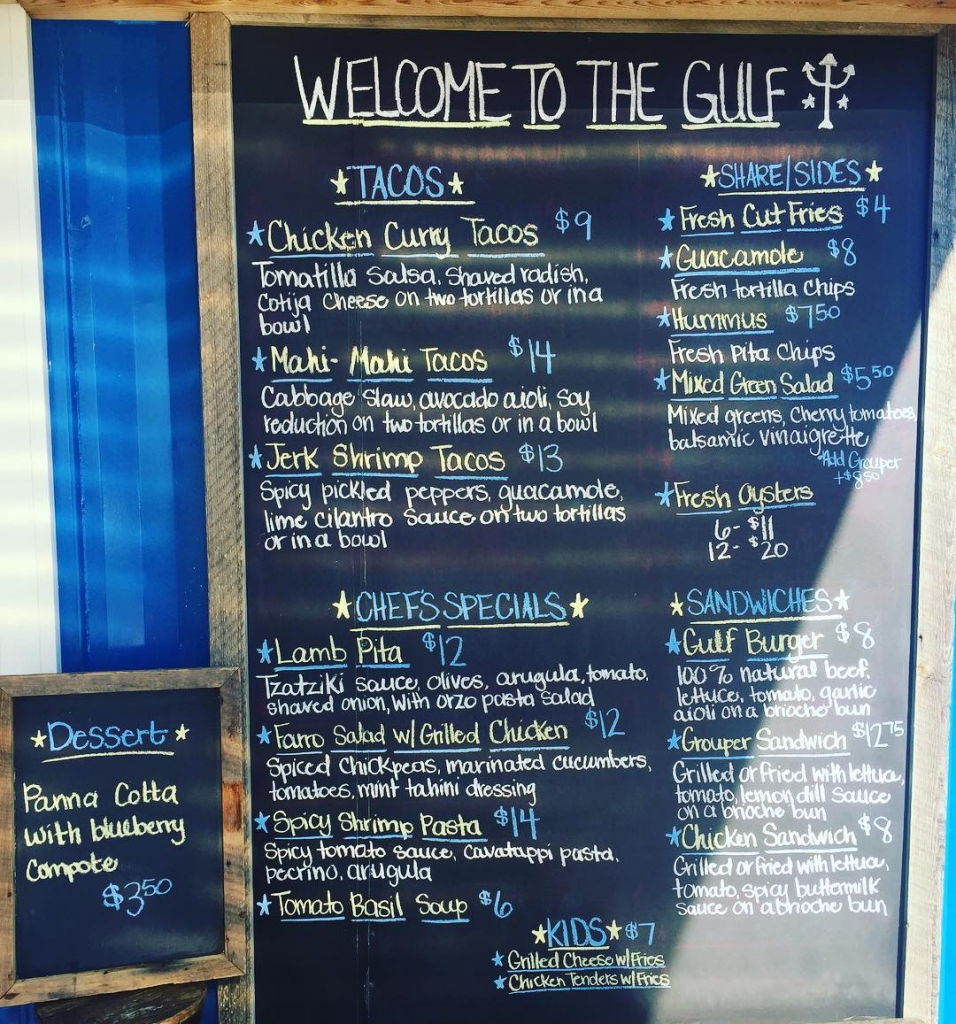 WELCOME TO THE GULF
TACOS
Chicken Curry Tacos $9
Tomatilla Salsa, Shaved radish,
Cotija Cheese on two tortillas or in a
bowl
Mahi-Mahi Tacos $14
Cabbage slaw, avocado aioli, soy
reduction on two tortillas or in a bowl
Jerk Shrimp Tacos $13
Spicy pickled peppers, guacamole,
lime cilantro sauce on two tortillas
or in a bowl
SHARE/SIDES
Fresh Cut Fries $4
Guacamole $8
Fresh tortilla Chips
Hummus $7.50
Fresh Pita Chips
Mixed Green Salad $5.50
Mixed greens, Cherry tomatoes,
balsamic vinaigrette
Add Grouper
+$8.50
Fresh Oysters
6- $11
12- $20
CHEF'S SPECIALS
Lamb Pita $12
Tzatziki sauce, olives, arugula, tomato,
shaved onion, with orzo pasta salad
Farro Salad w/ Grilled Chicken $12
Spiced Chickpeas, marinated cucumbers,
tomatoes, mint tahini dressing
Spicy Shrimp Pasta $14
Spicy tomato sauce, cavatappi pasta,
pecrino, arugula
Tomato Basil Soup $6
SANDWICHES
Gulf Burger $8
100% natural beef,
lettuce, tomato, garlic
aioli on a brioche bun
Grouper Sandwich $12.75
Grilled or Fried with lettuce,
tomato, lemon dill sauce
on a brioche bun
Chicken Sandwich $8
Grilled or fried with lettuce,
tomato, spicy buttermilk
sauce on a brioche bun
KIDS $7
Grilled Cheese w/ Fries
Chicken Tenders w/ Fries
Dessert
Panna Cotta
with blueberry
Compote
$3.50